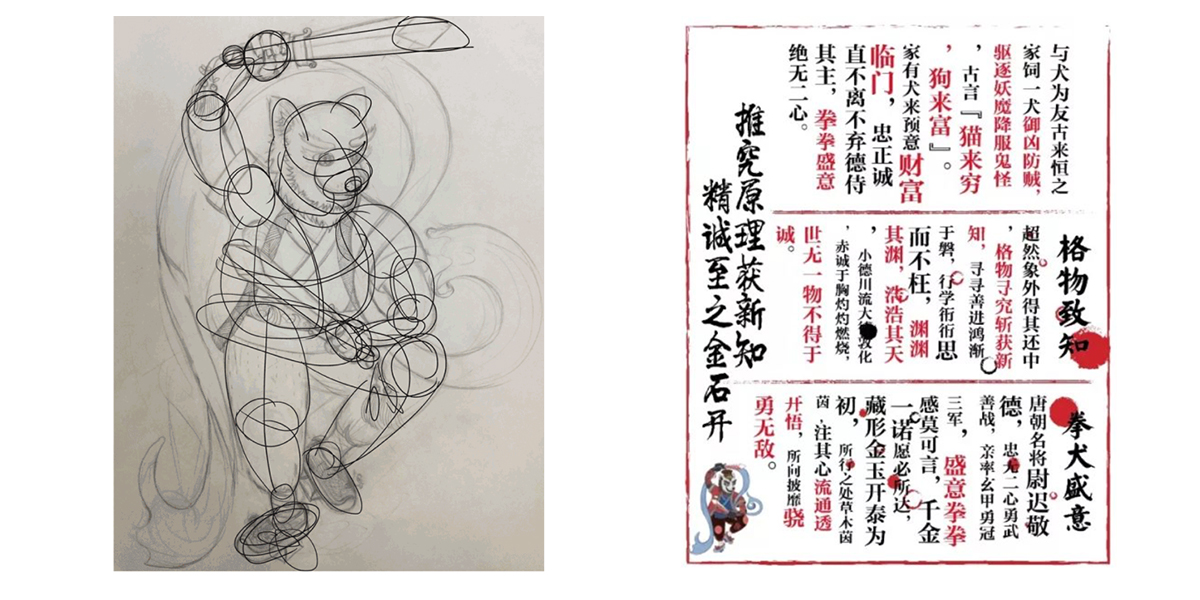 与犬为友古来恒之
家饲一犬御凶防贼，
驱逐妖魔降服鬼怪
，古言『猫来穷
，狗来富』。
家有犬来预意财富
临门，忠正诚
直不离不弃德侍
其主，拳拳盛意
绝无二心。
格物致知
超然象外得其还中
，格物寻究斩获新
知，寻寻善进鸿渐
于磐，行学衎衎思
而不枉，渊渊
其渊，浩浩其天
，小德川流大德敦化
，赤诚于胸灼灼燃烧，
世无一物不得于
诚。
拳犬盛意
唐朝名将尉迟敬
德，忠无二心勇武
善战，亲率玄甲勇冠
三军，盛意拳拳
感莫可言，千金
一诺愿必所达，
藏形金玉开泰为
初，所行之处草木茵
茵，注其心流通透
开悟，所向披靡骁
勇无敌。
推究原理获新知
精诚至之金石开